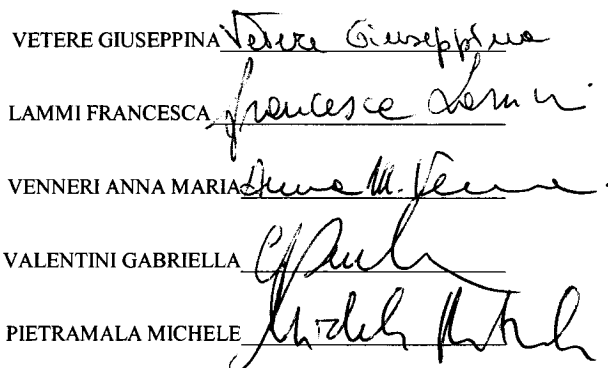 VETERE GIUSEPPINA Vetere Giuseppina
LAMMI FRANCESCA Francesca Lammi
VENNERI ANNA MARIA Anna M. Venneri
VALENTINI GABRIELLA
PIETRAMALA MICHELE Michele